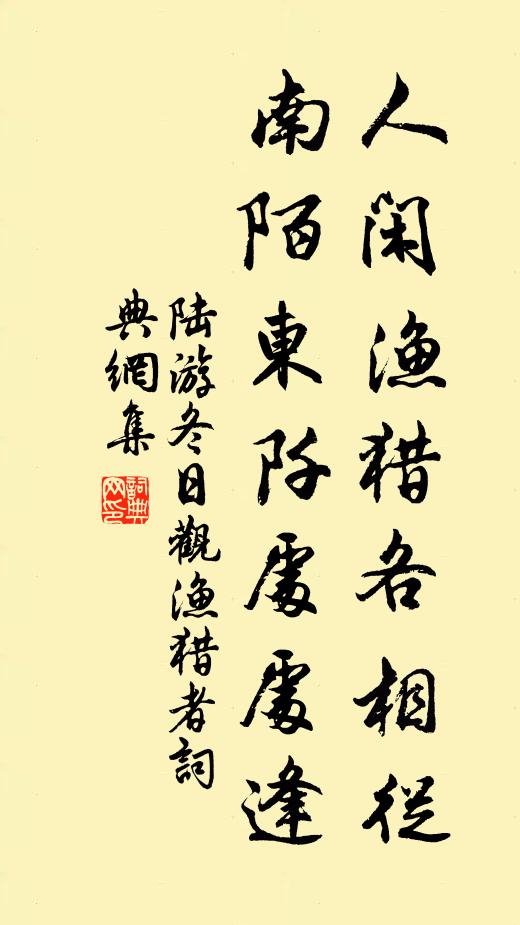 人閑漁猎各相從
南陌東阡處處逢
陆游冬日觀漁猎者詞
典網集
詞典
网印